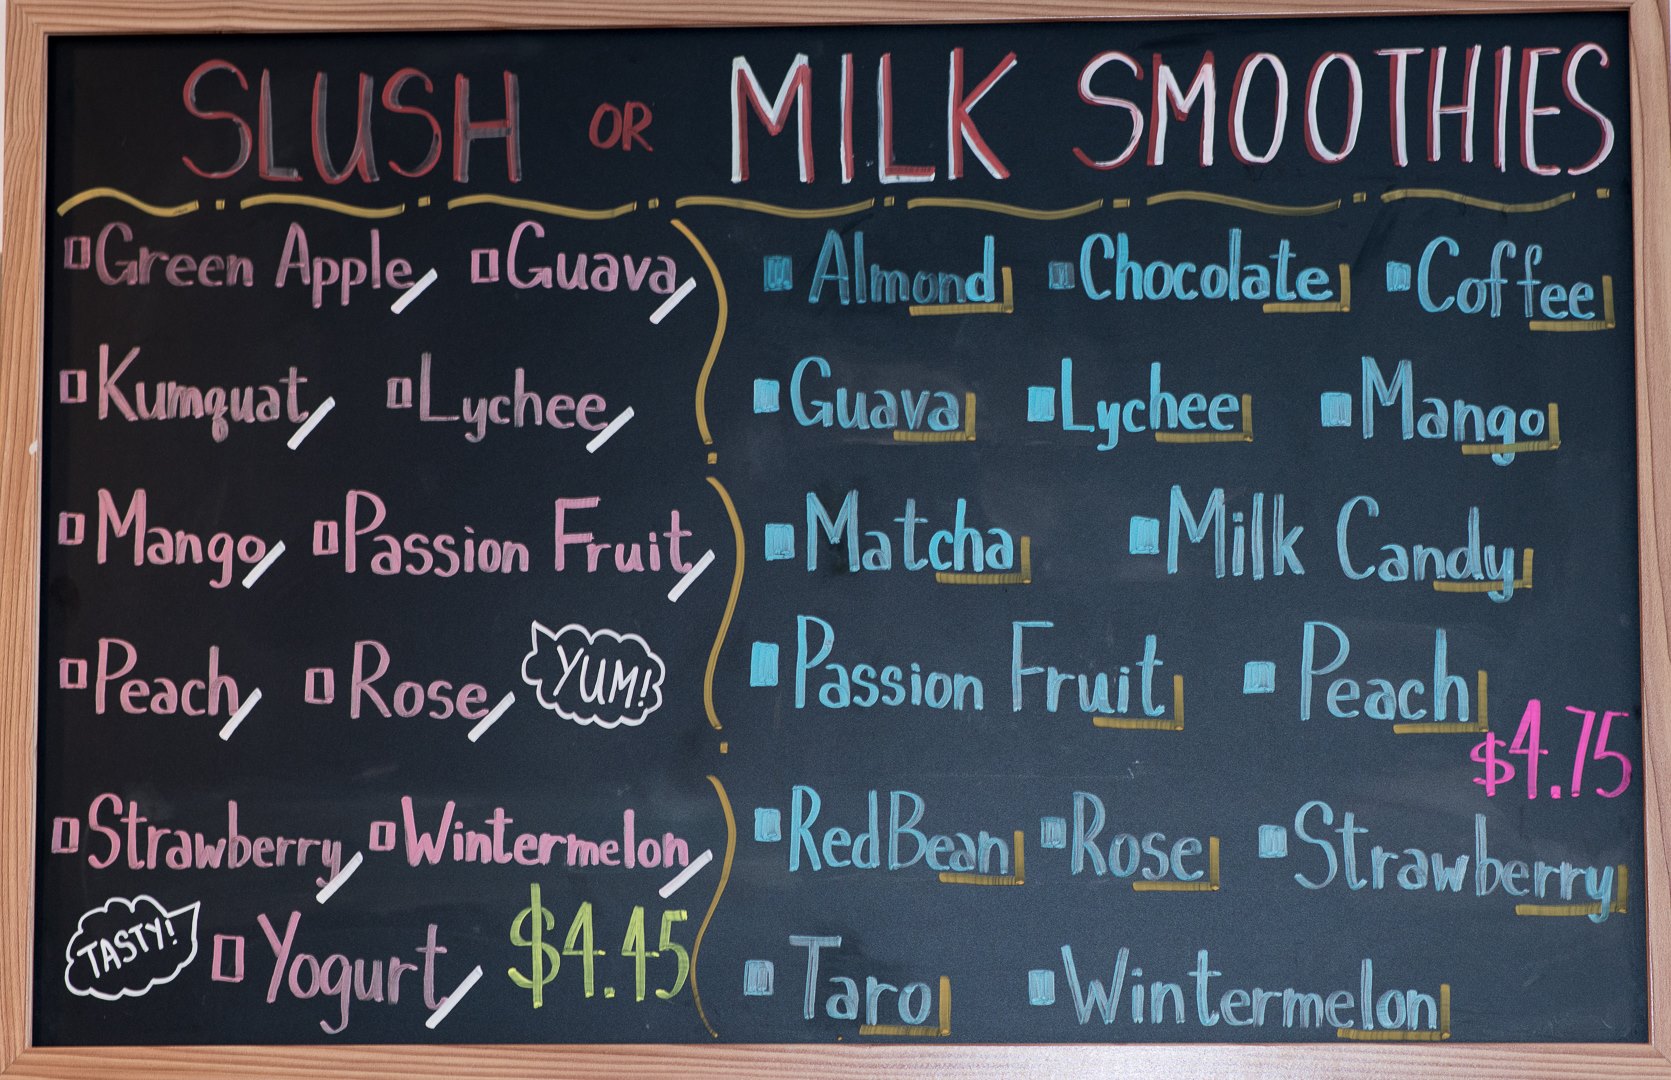 SLUSH OR MILK SMOOTHIES
Green Apple Guava
Kumquat Lychee
Mango Passion Fruit
Peach Rose YUM!
Strawberry Wintermelon
TASTY! Yogurt $4.45
Almond Chocolate Coffee
Guava Lychee Mango
Matcha Milk Candy
Passion Fruit Peach
$4.75
Red Bean Rose Strawberry
Taro Wintermelon